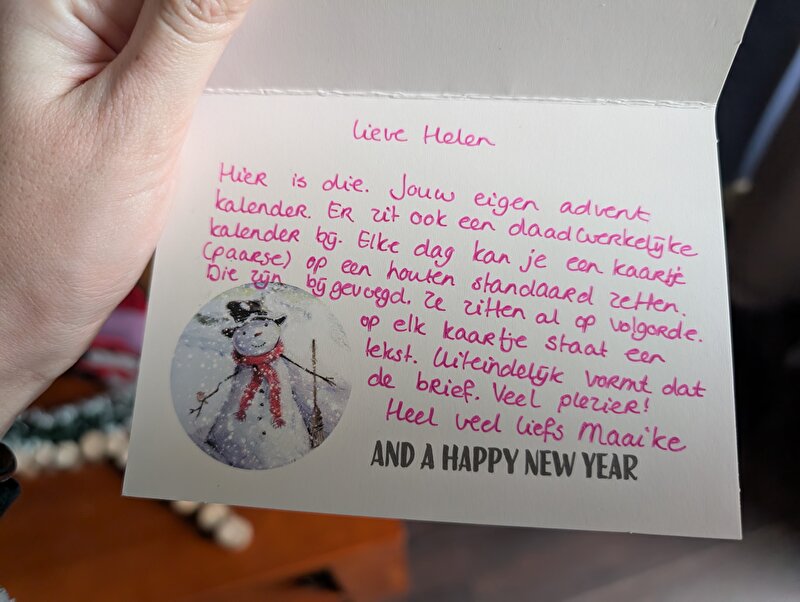 Lieve Helen
Hier is die. Jouw eigen advent
kalender. Er zit ook een daadwerkelijke
kalender bij. Elke dag kan je een kaartje
(paarse) op een houten standaard zetten.
Die zijn bijgevoegd. Ze zitten al op volgorde.
op elk kaartje staat een
tekst. Uiteindelijk vormt dat
de brief. Veel plezier!
Heel veel liefs Maaike
AND A HAPPY NEW YEAR